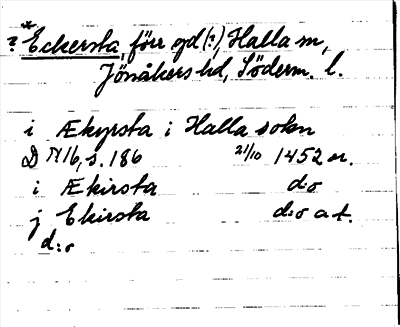 ? *Eckersta, förr gd (?), Halla sn,
Jönåkers hd, Söderm. l.
i Ækyrsta i Halla sokn
D n 16, s. 186 21/10 1452 or.
i Ækirsta d:o
j Ekirsta d:o a.t.
d:o